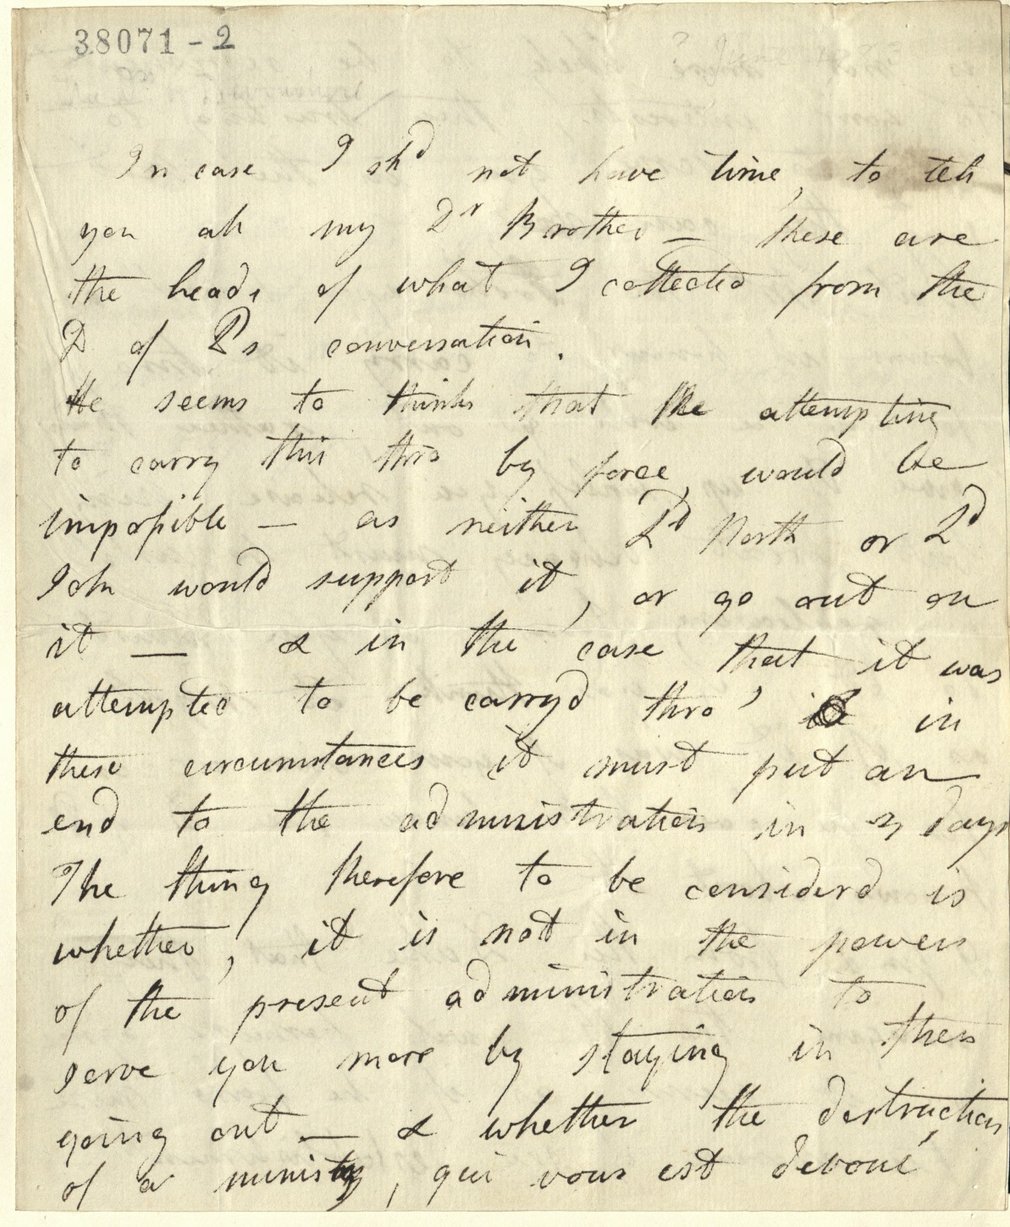 38071-2
In case I shd not have time, to tell
you all my Dr Brother — these are
the heads of what I collected from the
D of Ps conversation.
He seems to think that the attempting
to carry this thro by force, would be
impossible — as neither Ld North or Ld
John would support it, or go out on
it — & in the case that it was
attempted to be carryd thro' in
these circumstances it must put an
end to the administration in 3 days
The thing therefore to be considerd is
whether, it is not in the power
of the present administration to
serve you more by staying in then
going out — & whether the destruction
of a ministry, qui vous est devoué